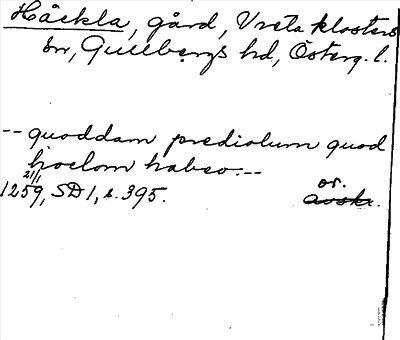 Häckla, gård, Vreta klosters
sn, Gullbergs hd, Österg. l.
-- quoddam prediolum quod
hoclom habeo. --
21/1
1259, SD 1, s. 395.
or.
avskr.